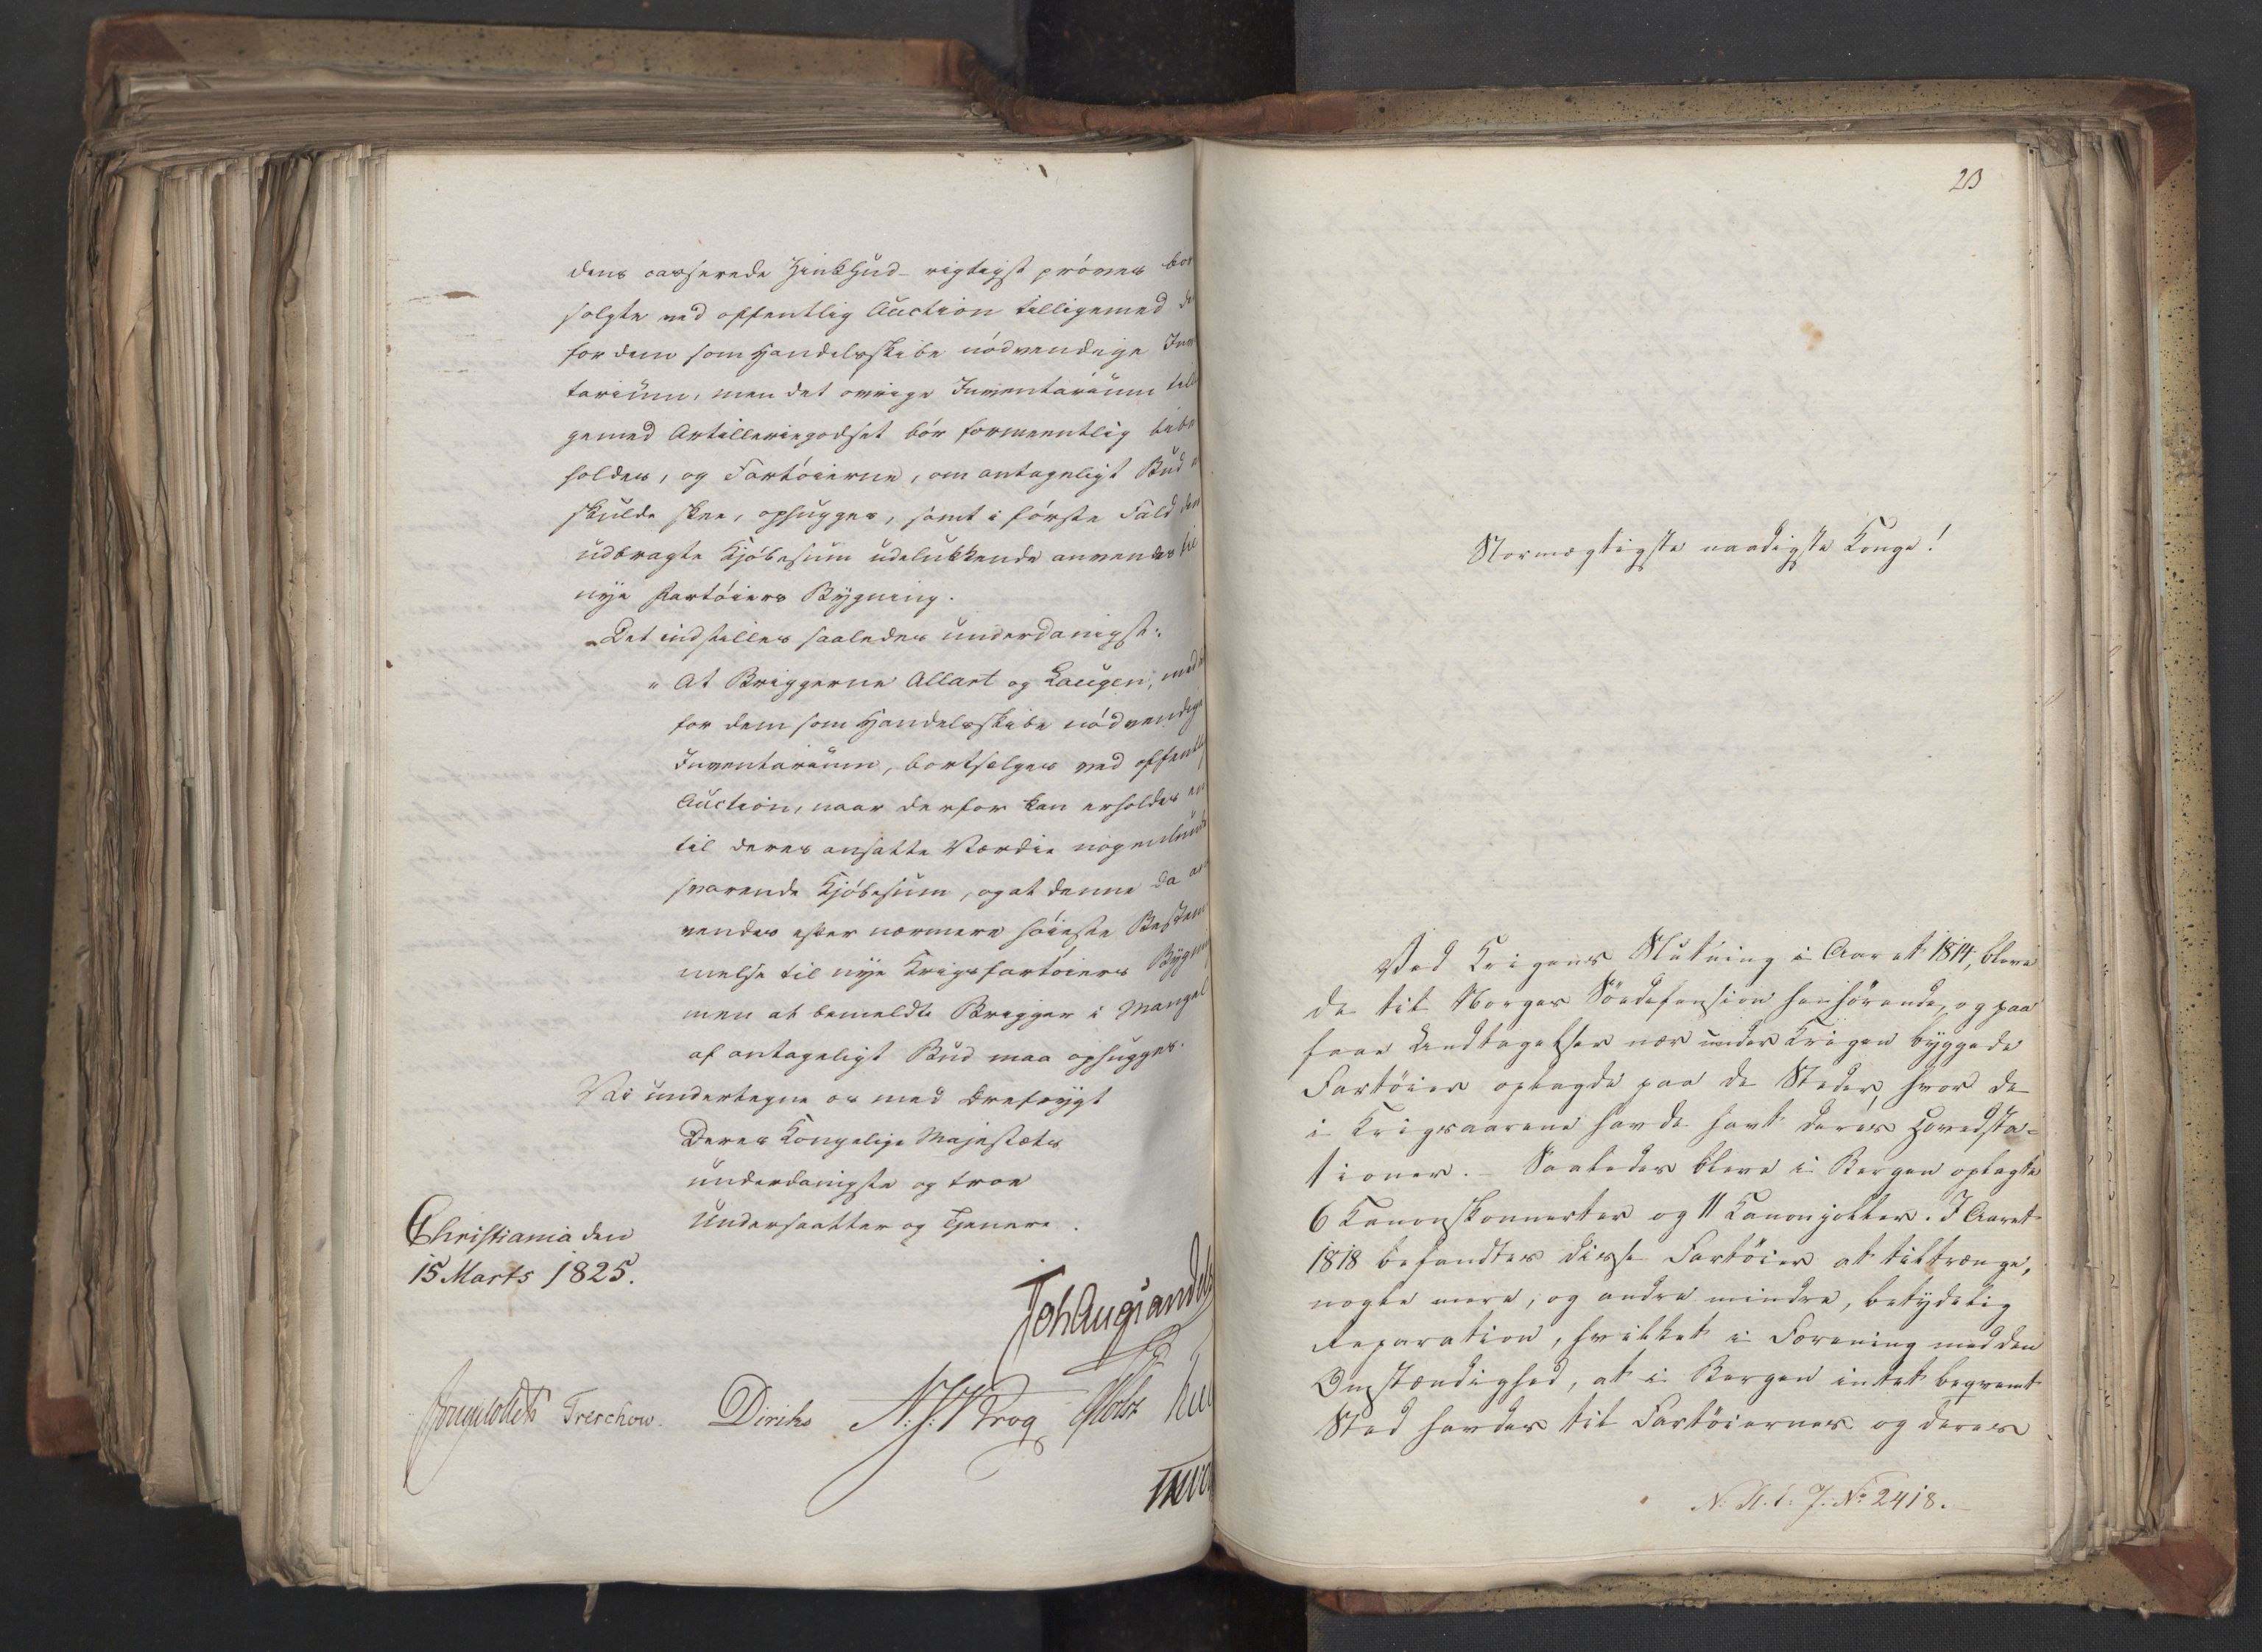 dens casserede Zinkhud rigtigst prøves
solgte ved offentlig Auction tilligemed
for dem som Handelsskibe nødvendige
tarium, men det øvrige Inventarium
gemed Artilleriegodset bør formeentlig
holdes, og Fartøierne, om antageligt Bud
skulde skee, ophugges, samt i første Fald
udbragte Kjøbesum udelukkende anvendes til
nye Fartøiers Bygning.
Det indstilles saaledes underdanigst:
"At Briggerne Allart og Laugen, med
for dem som Handelsskibe nødvendige
Inventarium, bortsælges ved offentlig
Auction, naar derfor kan erholdes en
til deres ansatte Værdie nogenlunde
svarende Kjøbesum, og at denne da an
vendes efter nærmere høieste Bestem
melse til nye Krigsfartøiers Bygning
men at bemeldte Brigger i Mangel
af antageligt Bud maa ophugges.
Vi undertegne os med Ærefrygt
Deres Kongelige Majestæts
underdanigste og troe
Undersaatter og Tjenere.
Christiania den
15 Marts 1825.
Joh Aug Sandels
Treschow Diriks Holst
23
Stormægtigste naadigste Konge!
Ved Krigens Slutning i Aaret 1814, bleve
de til Norges Søedefension henhørende, og paa
faae Undtagelser nær under Krigen byggede
Fartøier oplagde paa de Steder, hvor de
i Krigsaarene havde havt deres Hovedsta-
tioner. Saaledes bleve i Bergen oplagte
6 Kanonskonnerter og 11 Kanonjoller. I Aaret
1818 befandtes disse Fartøier at tiltrænge,
nogle mere, og andre mindre, betydelig
Reparation, hvilket i Forening med den
Omstændighed, at i Bergen intet beqvemt
Sted havdes til Fartøiernes og deres
N. St. C. J. No 2418.